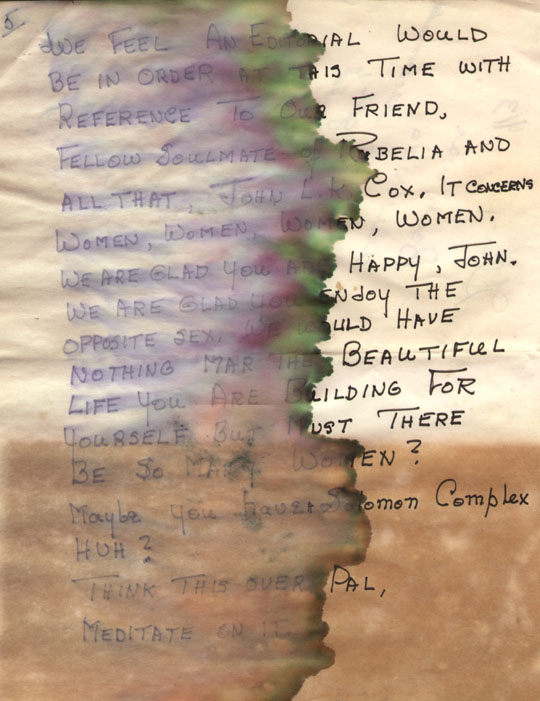 5
WE FEEL AN EDITORIAL WOULD
BE IN ORDER AT THIS TIME WITH
REFERENCE TO OUR FRIEND,
FELLOW SOULMATE of RIBELIA AND
ALL THAT, JOHN L. Cox. IT CONCERNS
WOMEN, WOMEN, WOMEN, WOMEN.
WE ARE GLAD YOU ARE HAPPY, JOHN.
WE ARE GLAD YOU ENJOY THE
OPPOSITE SEX. WE WOULD HAVE
NOTHING MAR THE BEAUTIFUL
LIFE YOU ARE BUILDING FOR
YOURSELF BUT MUST THERE
BE SO MANY WOMEN?
Maybe you have a Solomon Complex
HUH?
THINK THIS OVER PAL,
MEDITATE ON IT.